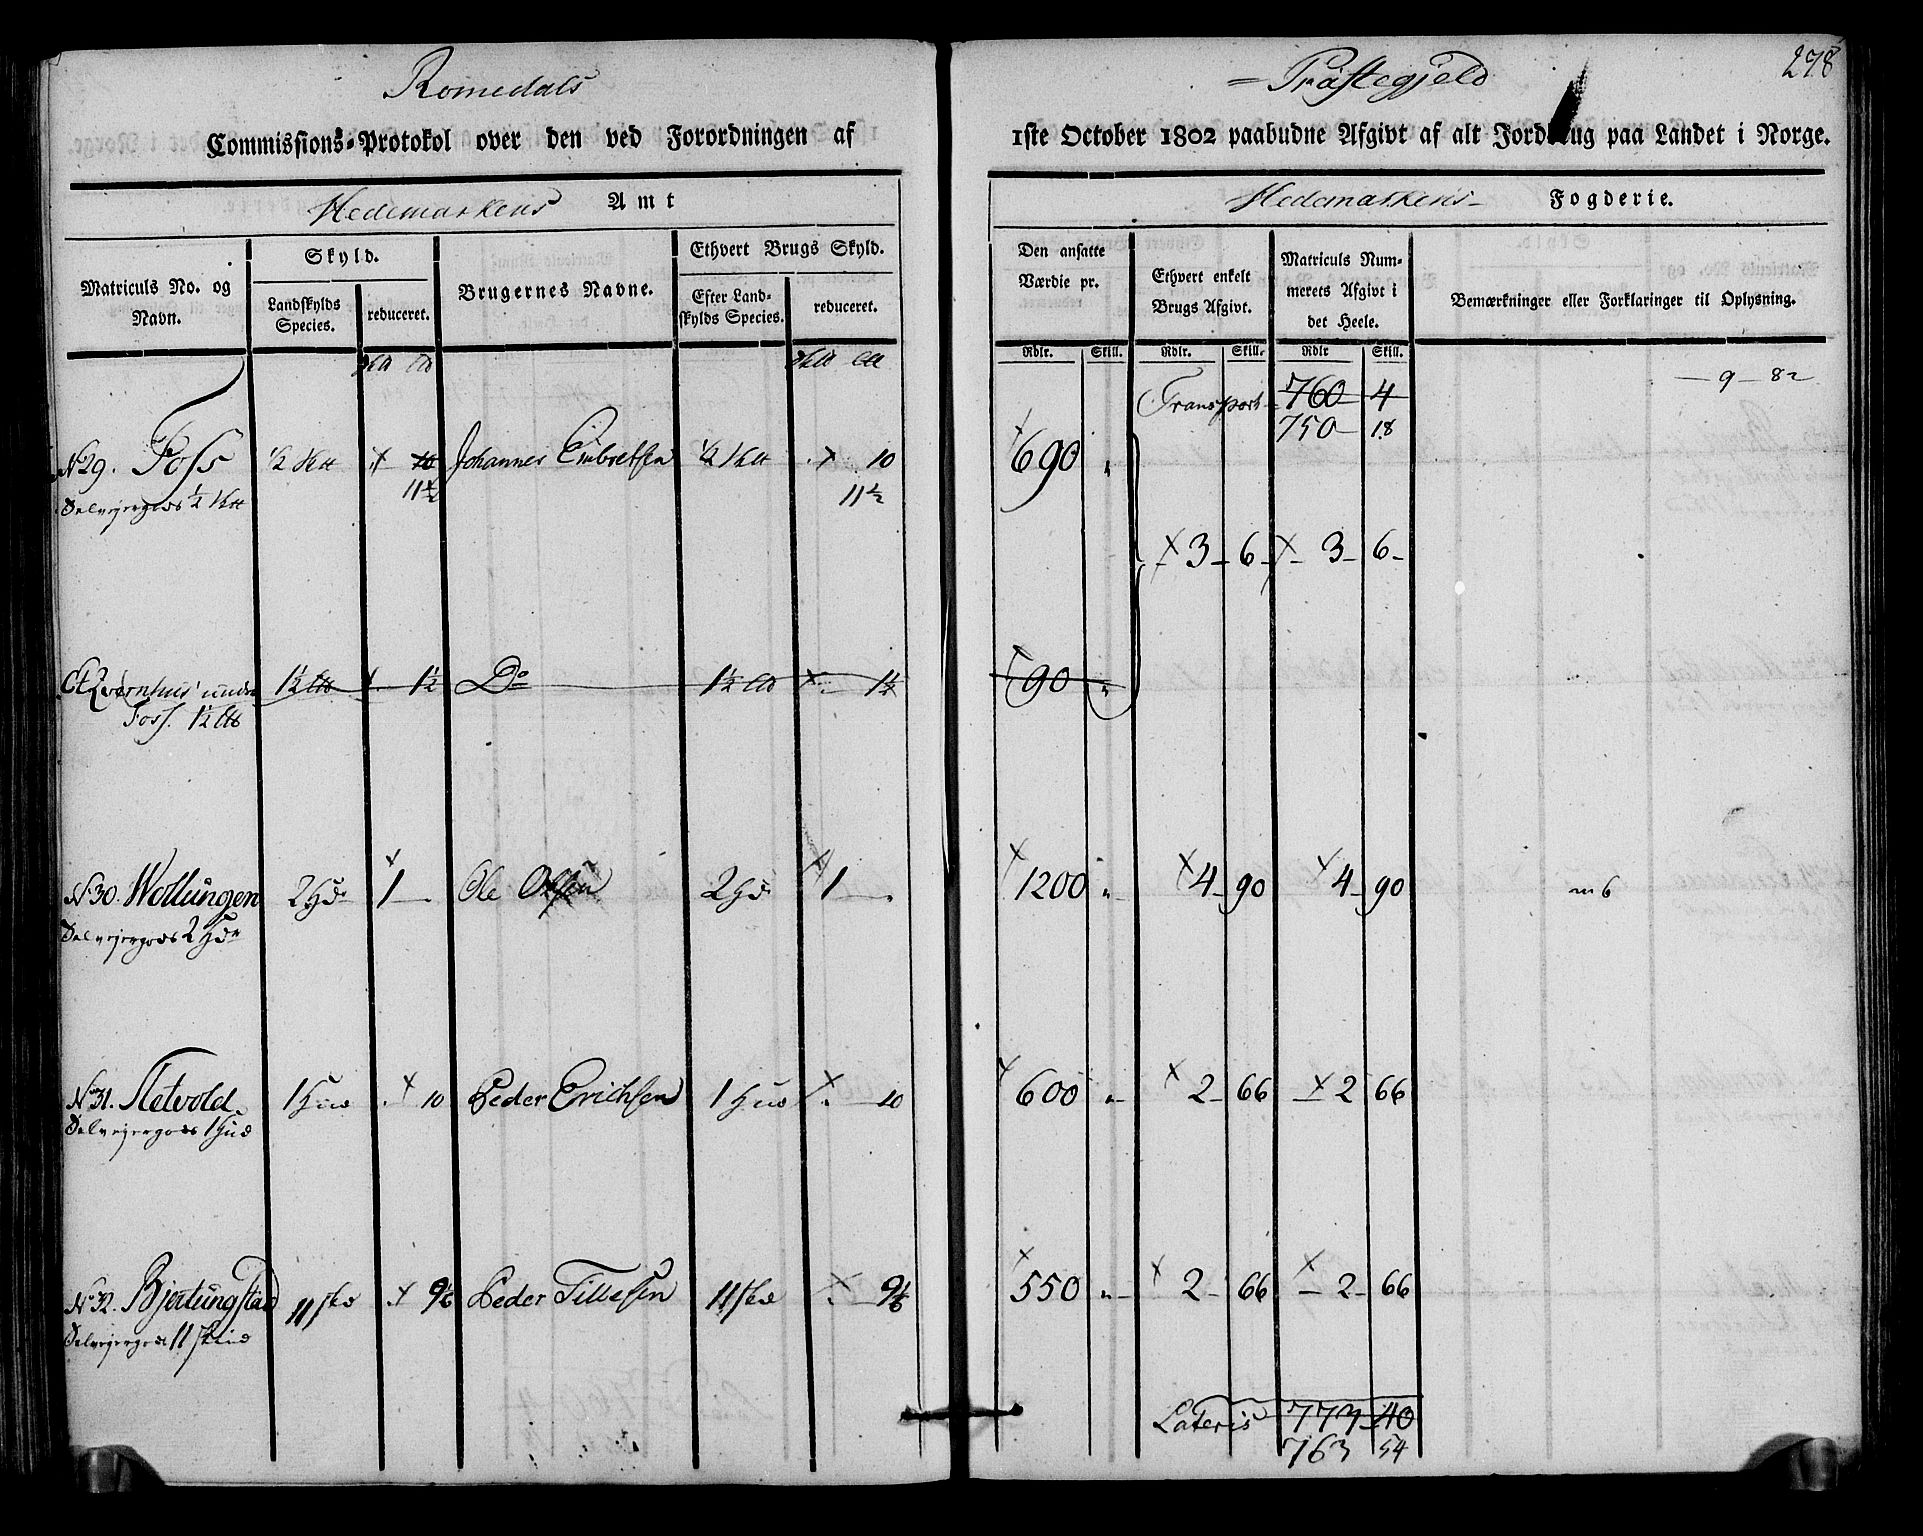 278
Romedals = Præstegjeld
Commissions-Protokol over den ved Forordningen af 1ste October 1802 paabudne Afgivt af alt Jordbrug paa Landet i Norge.
Hedemarkens Amt Hedemarkens Fogderie.
Matriculs No. og Navn.
Skyld.
Landskylds Species.
reduceret.
Brugernes Navne.
Ethvert Brugs Skyld.
Efter Landskylds Species.
reduceret.
Den ansatte Værdie pr.
Ethvert enkelt Brugs Afgivt.
Matriculs Nummerets Afgivt i det Heele.
Bemærkninger eller Forklaringer til Oplysning.
Rdlr. Skill. Rdlr. Skill. Rdlr Skill.
Transport 760 4 — 9 — 82
750 18
No 29. Foss ½ 10 Johannes Embretsen ½ 10 690
Selvejergods ½ 11½ 11½
3 6 3 6
Et Qvernhuus under 1½ 1½ Do 1½ 1½ 90
Foss. 1½
No 30. Wollungen 2 Hd 1 Ole Olsen 2 Hd 1 1200 4 90 4 90 m 6
Selvejergods 2 Hdr
No 31. Fletvold 1 Hud 10 Peder Erichsen 1 Hud 10 600 2 66 2 66
Selvejergods 1 Hud
No 32. Bjertungstad 11 skd 9⅙ Peder Tillesen 11 skd 9⅙ 550 2 66 2 66
Selvejergods 11 skind
Lateris 773 40
763 54